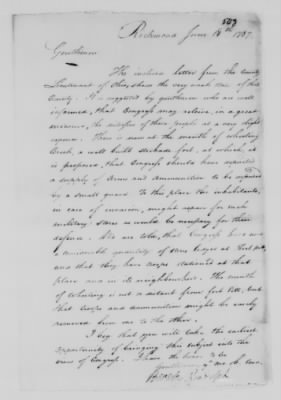 503
Richmond June 16th 1787.
Gentlemen
The inclosed letter from the County
Lieutenant of Ohio, shews the very weak state of this
County. It is suggested by gentlemen who are well
informed, that Congress may relieve, in a great
measure, the distresses of these people at a very slight
expence. There is now at the mouth of wheeling
Creek, a well built stockade fort, at which, it
is proposed, that Congress should have deposited
a supply of Arms and Ammunition to be guarded
by a small guard. To this place the inhabitants,
in case of invasion, might repair for such
military stores as would be necessary for their
defence. We are told, that Congress have now
a considerable quantity of stores lodged at Fort pitt,
and that they have troops stationed at that
place and in its neighbourhood. The mouth
of wheeling is not distant from fort Pitt, but
that troops and ammunition might be easily
removed from one to the other.
I beg that you will take the earliest
opportunity of bringing this subject into the
view of Congress. I have the honor to be
Gentlemen